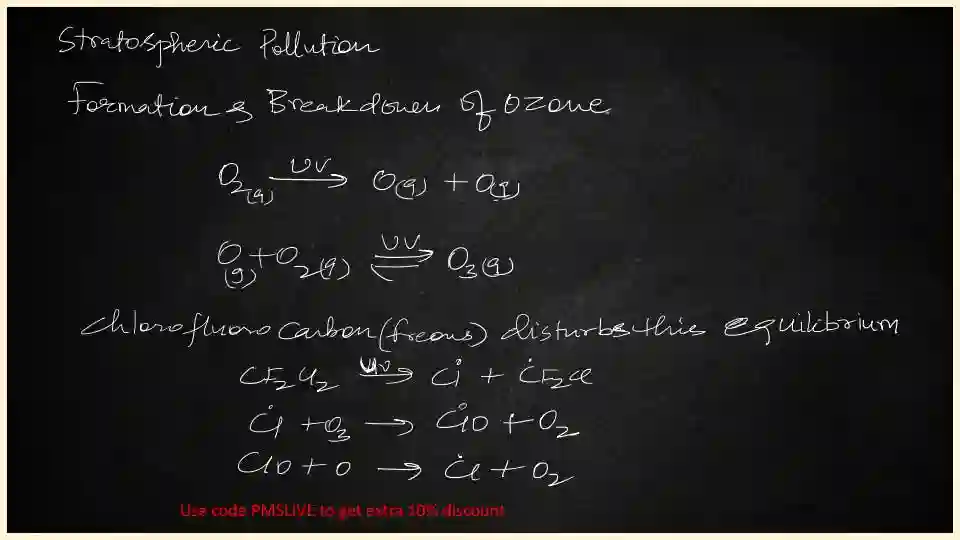 Stratospheric Pollution
Formation & Breakdown of Ozone
O2(g) UV→ O(g) + O(g)
O(g) + O2(g) UV⇌ O3(g)
Chlorofluorocarbon (freons) disturbs this equilibrium
CF2Cl2 UV→ Ċl + ĊF2Cl
Ċl + O3 → ClȮ + O2
ClO + O → Ċl + O2
Use code PMSLIVE to get extra 10% discount